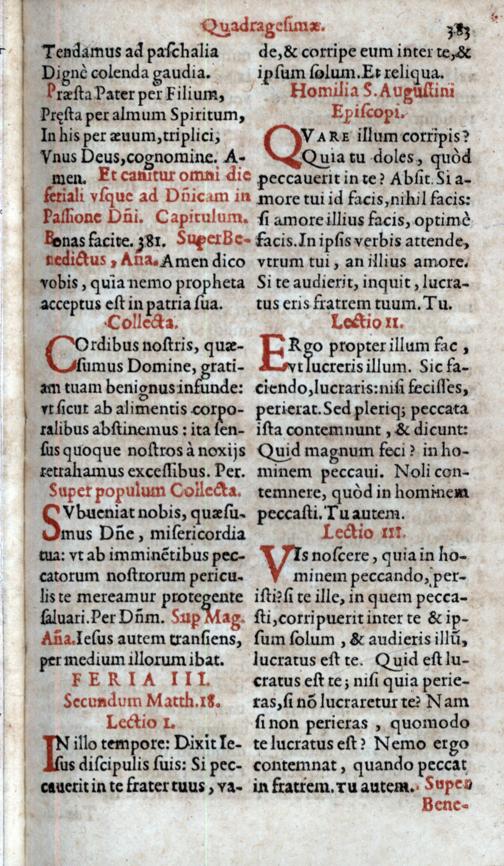 Quadragesimæ. 383
Tendamus ad paschalia
Dignè colenda gaudia.
Præsta Pater per Filium,
Pręsta per almum Spiritum,
In his per æuum, triplici,
Vnus Deus, cognomine. A-
men. Et canitur omni die
feriali vsque ad Dñicam in
Passione Dñi. Capitulum.
Bonas facite. 381. Super Be-
nedictus, Aña. Amen dico
vobis, quia nemo propheta
acceptus est in patria sua.
Collecta.
COrdibus nostris, quæ-
sumus Domine, grati-
am tuam benignus infunde:
vt sicut ab alimentis corpo-
ralibus abstinemus: ita sen-
sus quoque nostros à noxijs
retrahamus excessibus. Per.
Super populum Collecta.
SVbueniat nobis, quæsu-
mus Dñe, misericordia
tua: vt ab imminẽtibus pec-
catorum nostrorum pericu-
lis te mereamur protegente
saluari. Per Dñm. Sup Mag.
Aña. Iesus autem transiens,
per medium illorum ibat.
FERIA III.
Secundum Matth. 18.
Lectio 1.
IN illo tempore: Dixit Ie-
sus discipulis suis: Si pec-
cauerit in te frater tuus, va-
de, & corripe eum inter te, &
ipsum solum. Et reliqua.
Homilia S. Augustini
Episcopi.
QVARE illum corripis?
Quia tu doles, quòd
peccauerit in te? Absit. Si a-
more tui id facis, nihil facis:
si amore illius facis, optimè
facis. In ipsis verbis attende,
vtrum tui, an illius amore.
Si te audierit, inquit, lucra-
tus eris fratrem tuum. Tu.
Lectio II.
ERgo propter illum fac,
vt lucreris illum. Sic fa-
ciendo, lucraris: nisi fecisses,
perierat. Sed pleriq; peccata
ista contemnunt, & dicunt:
Quid magnum feci? in ho-
minem peccaui. Noli con-
temnere, quòd in hominem
peccasti. Tu autem.
Lectio III.
VIs noscere, quia in ho-
minem peccando, per-
isti? si te ille, in quem pecca-
sti, corripuerit inter te & ip-
sum solum, & audieris illũ,
lucratus est te. Quid est lu-
cratus est te; nisi quia perie-
ras, si nõ lucraretur te? Nam
si non perieras, quomodo
te lucratus est? Nemo ergo
contemnat, quando peccat
in fratrem. Tu autem. Super
Bene-